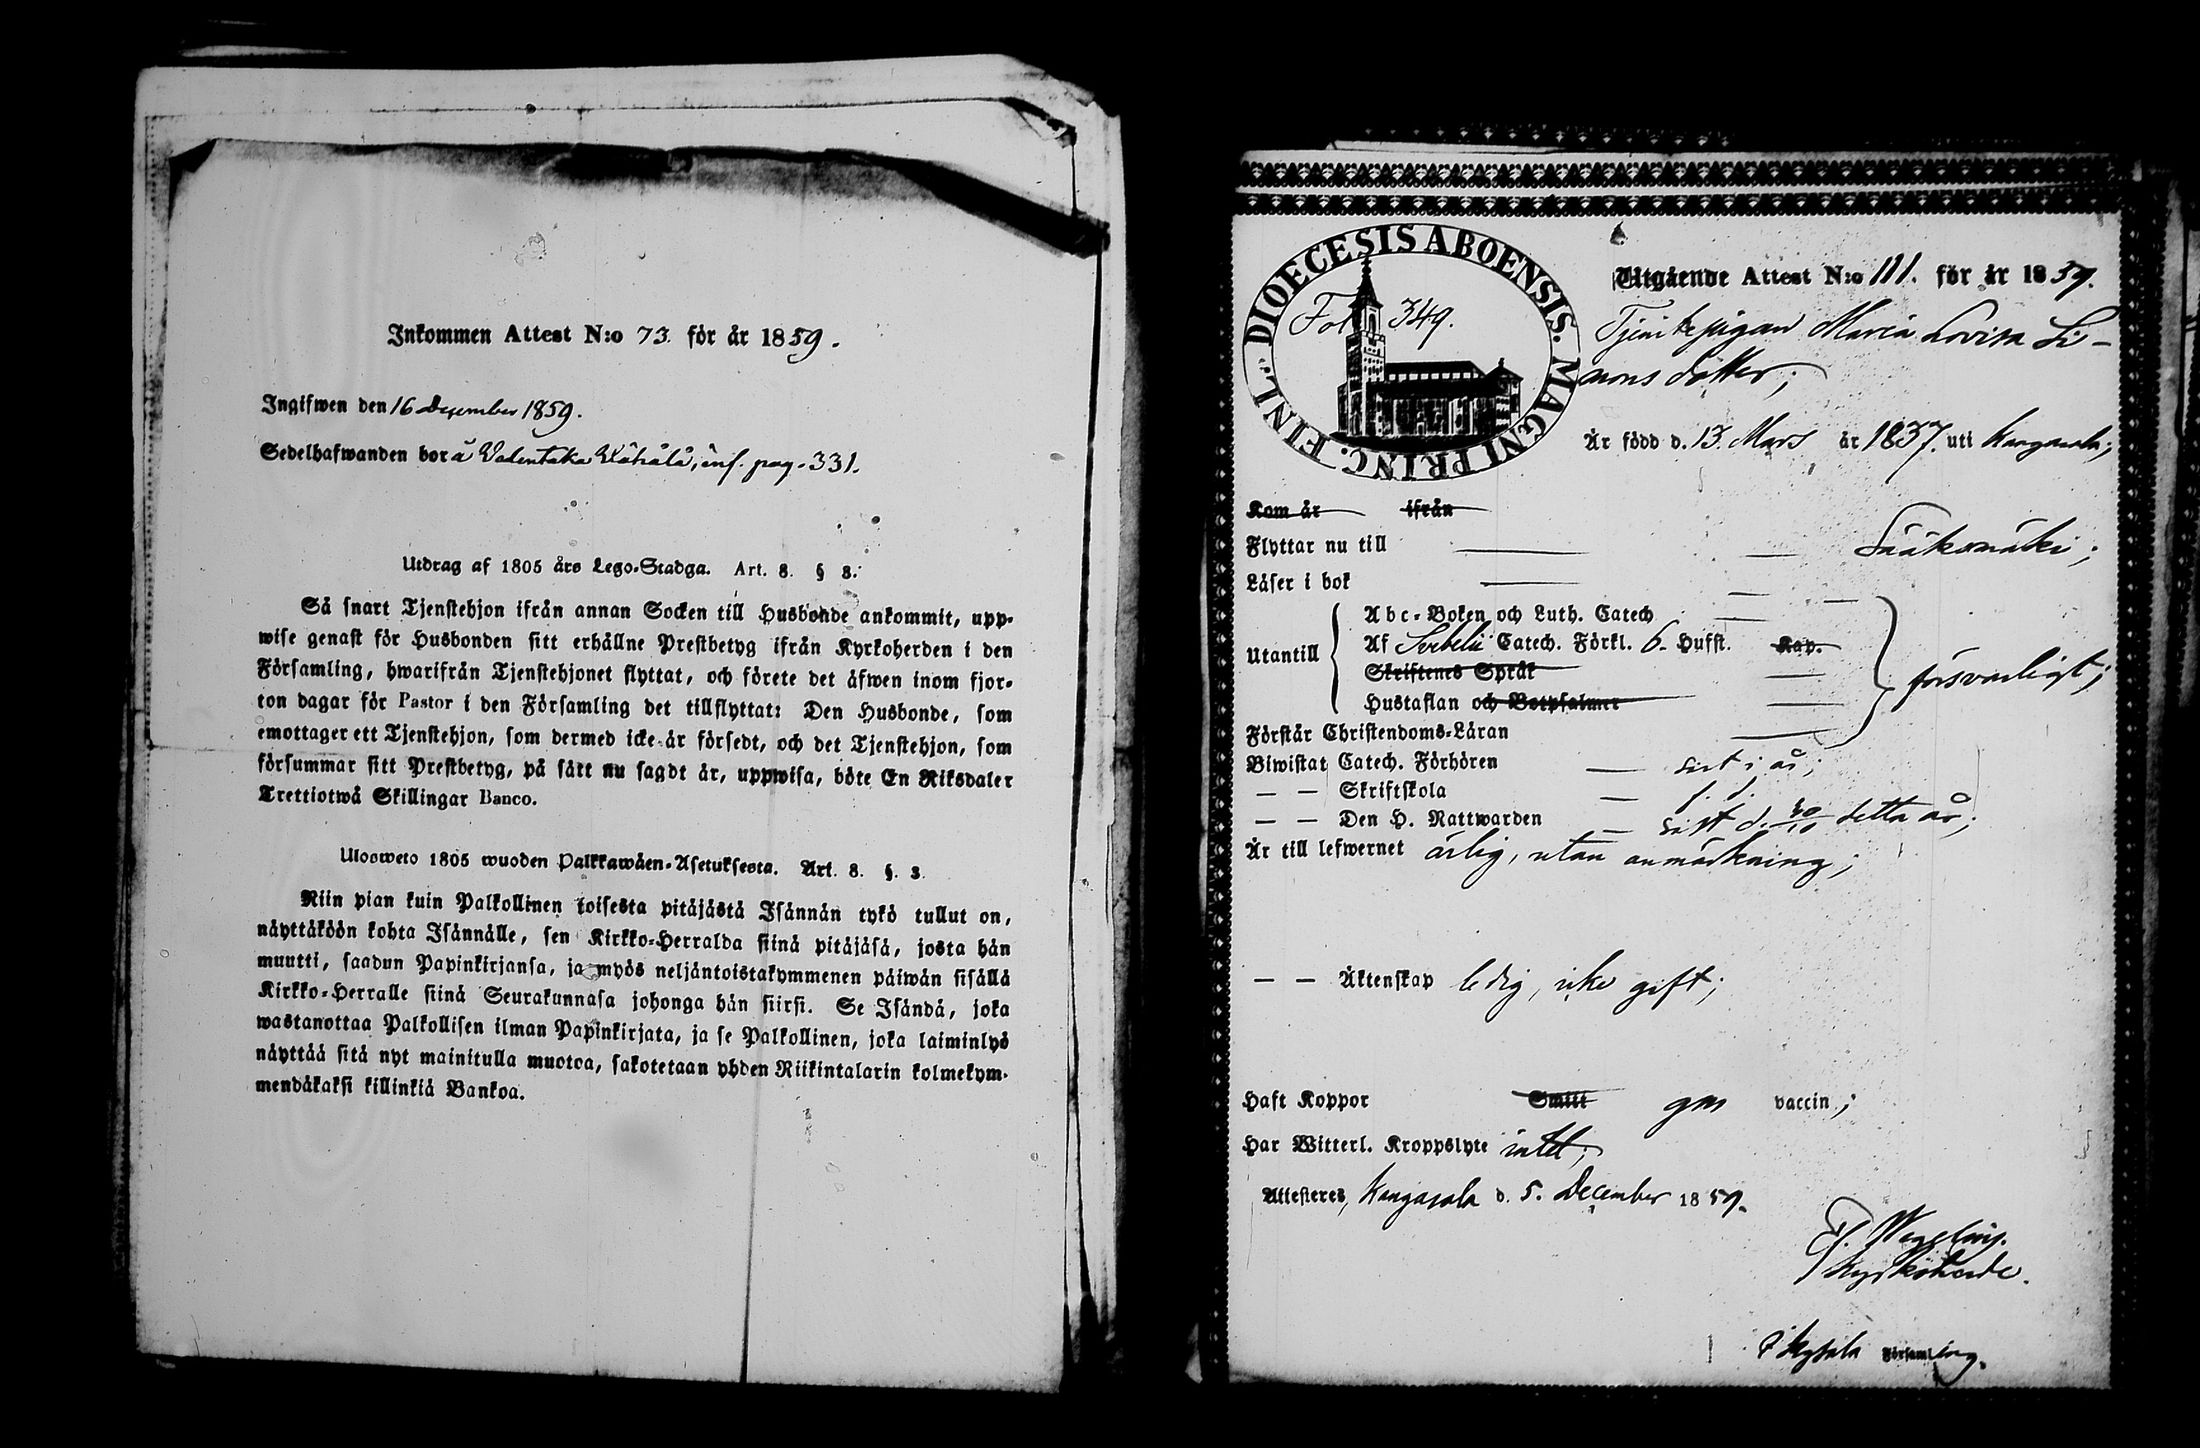 Inkommen Attest N:o 73. för år 1859.
Ingifwen den 16 December 1859.
Sedelhafwanden bor å Valentaka Wähälä, inf. pag. 331.
Utdrag af 1805 års Lego-Stadga. Art. 8. § 3.
Så snart Tjenstehjon ifrån annan Socken till Husbonde ankommit, upp-
wise genast för Husbonden sitt erhållne Prestbetyg ifrån Kyrkoherden i den
Församling, hwarifrån Tjenstehjonet flyttat, och förete det äfwen inom fjor-
ton dagar för Pastor i den Församling det tillflyttat: Den Husbonde, som
emottager ett Tjenstehjon, som dermed icke är försedt, och det Tjenstehjon, som
försummar sitt Prestbetyg, på sätt nu sagdt är, uppwisa, böte En Riksdaler
Trettiotwå Skillingar Banco.
Ulosweto 1805 wuoden Palkkawäen-Asetuksesta. Art. 8. §. 3.
Niin pian kuin Palkollinen toisesta pitäjästä Isännän tykö tullut on,
näyttäköön kohta Isännälle, sen Kirkko-Herralda siinä pitäjäsä, josta hän
muutti, saadun Papinkirjansa, ja myös neljäntoistakymmenen päiwän sisällä
Kirkko-Herralle siinä Seurakunnasa johonga hän siirsi. Se Isändä, joka
wastanottaa Palkollisen ilman Papinkirjata, ja se Palkollinen, joka laiminlyö
näyttää sitä nyt mainitulla muotoa, sakotetaan yhden Riikintalarin kolmekym-
mendäkaksi killinkiä Bankoa.
DIOECESIS ABOENSIS. MAGNI PRINC. FINL.
Fol. 349.
Utgående Attest N:o 111. för år 1859.
Tjenstepigan Maria Lovisa Si-
mons dotter;
Är född d. 13. Mars år 1837. uti Kangasala;
Kom år ifrån
Flyttar nu till Sääksmäki;
Läser i bok
Abc-Boken och Luth. Catech
Utantill Af Svebelii Catech. Förkl. 6. Hufst. Kap.
Skriftenes Språk
försvarligt;
Hustaflan och Botpsalmer
Förstår Christendoms-Läran
Biwistat Catech. Förhören sist i år;
— — Skriftskola
— — Den H. Nattwarden sist d. 30/10 detta år;
Är till lefwernet ärlig, utan anmärkning;
— — Äktenskap ledig, icke gift;
Haft Koppor Smitt gm vaccin;
Har Witterl. Kroppslyte intet;
Attesteres, Kangasala d. 5. December 1859.
Kyrkoherde.
Församling.